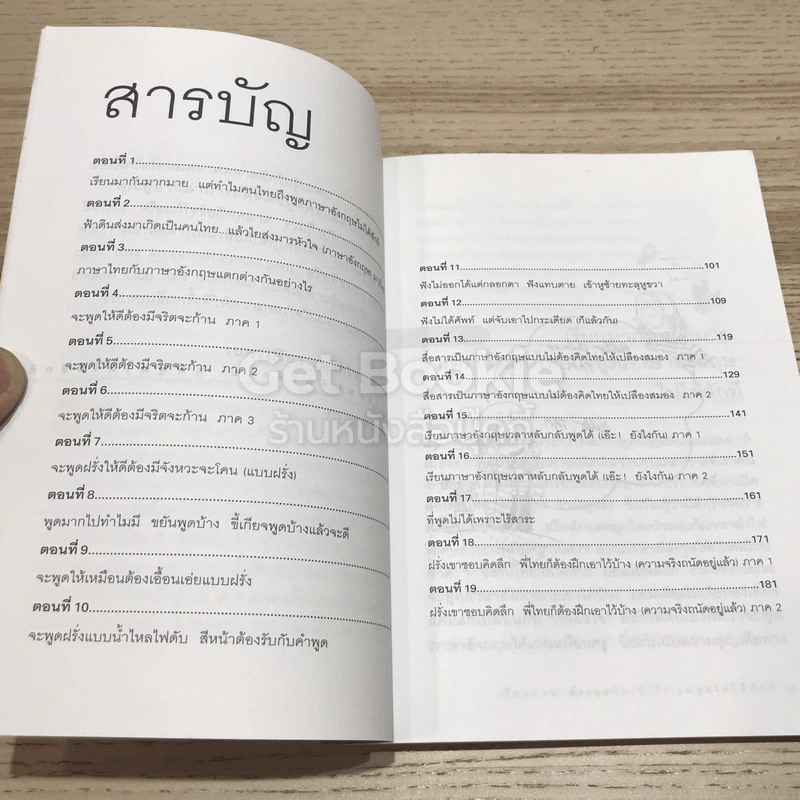 สารบัญ
ตอนที่ 1
เรียนมากันมากมาย แต่ทำไมคนไทยถึงพูดภาษาอังกฤษไม่ได้สักที
ตอนที่ 2
ฟ้าดินส่งมาเกิดเป็นคนไทย...แล้วไยส่งมารหัวใจ (ภาษาอังกฤษ)
ตอนที่ 3
ภาษาไทยกับภาษาอังกฤษแตกต่างกันอย่างไร
ตอนที่ 4
จะพูดให้ดีต้องมีจริตจะก้าน ภาค 1
ตอนที่ 5
จะพูดให้ดีต้องมีจริตจะก้าน ภาค 2
ตอนที่ 6
จะพูดให้ดีต้องมีจริตจะก้าน ภาค 3
ตอนที่ 7
จะพูดฝรั่งให้ดีต้องมีจังหวะจะโคน (แบบฝรั่ง)
ตอนที่ 8
พูดมากไปทำไมมี ขยันพูดบ้าง ขี้เกียจพูดบ้างแล้วจะดี
ตอนที่ 9
จะพูดให้เหมือนต้องเอื้อนเอ่ยแบบฝรั่ง
ตอนที่ 10
จะพูดฝรั่งแบบน้ำไหลไฟดับ สีหน้าต้องรับกับคำพูด
ตอนที่ 11 101
ฟังไม่ออกได้แต่กลอกตา ฟังแทบตาย เข้าหูซ้ายทะลุหูขวา
ตอนที่ 12 109
ฟังไม่ได้ศัพท์ แต่จับเอาไปกระเดียด (ก็แล้วกัน)
ตอนที่ 13 119
สื่อสารเป็นภาษาอังกฤษแบบไม่ต้องคิดไทยให้เปลืองสมอง ภาค 1
ตอนที่ 14 129
สื่อสารเป็นภาษาอังกฤษแบบไม่ต้องคิดไทยให้เปลืองสมอง ภาค 2
ตอนที่ 15 141
เรียนภาษาอังกฤษเวลาหลับกลับพูดได้ (เอ๊ะ! ยังไงกัน) ภาค 1
ตอนที่ 16 151
เรียนภาษาอังกฤษเวลาหลับกลับพูดได้ (เอ๊ะ! ยังไงกัน) ภาค 2
ตอนที่ 17 161
ที่พูดไม่ได้เพราะไร้สาระ
ตอนที่ 18 171
ฝรั่งเขาชอบคิดลึก พี่ไทยก็ต้องฝึกเอาไว้บ้าง (ความจริงถนัดอยู่แล้ว) ภาค 1
ตอนที่ 19 181
ฝรั่งเขาชอบคิดลึก พี่ไทยก็ต้องฝึกเอาไว้บ้าง (ความจริงถนัดอยู่แล้ว) ภาค 2
Get Bookie
ร้านหนังสือเก็ตบุ๊คกี้